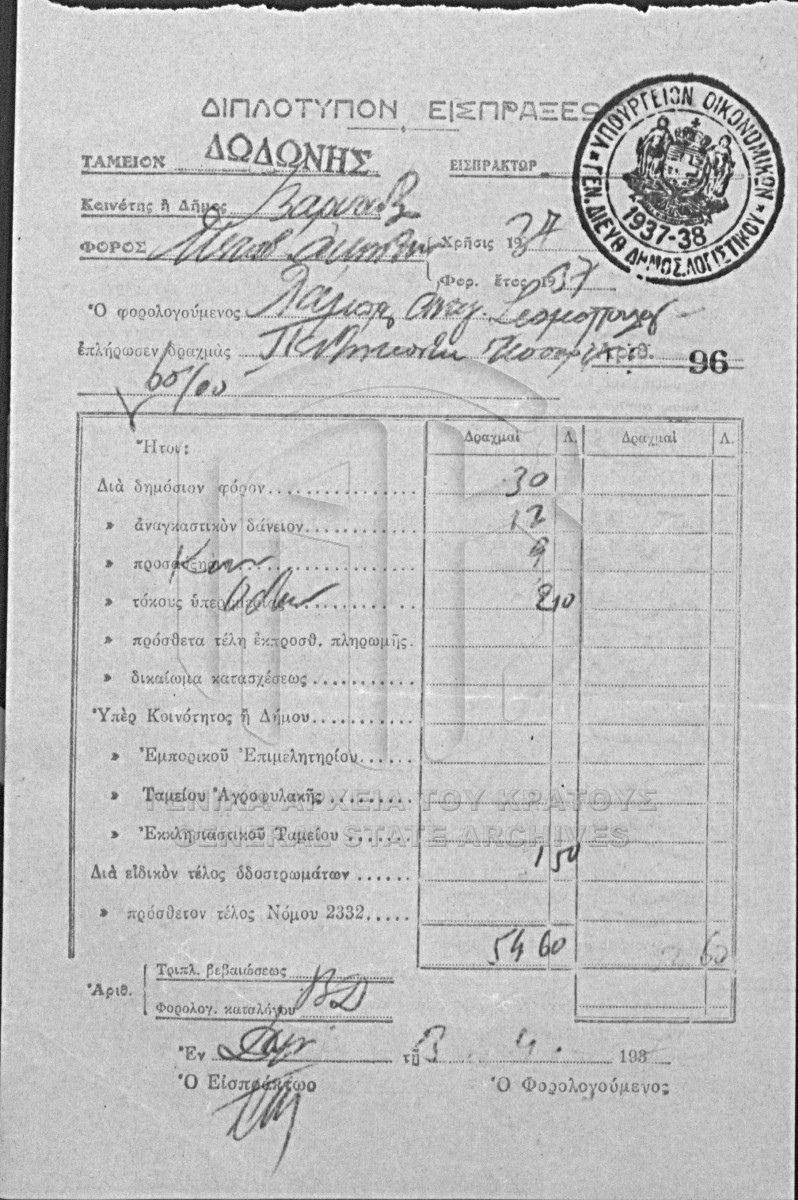 ΔΙΠΛΟΤΥΠΟΝ ΕΙΣΠΡΑΞΕΩ
ΥΠΟΥΡΓΕΙΟΝ ΟΙΚΟΝΟΜΙΚΩΝ
ΓΕΝ. ΔΙΕΥΘ ΔΗΜΟΣ. ΛΟΓΙΣΤΙΚΟΥ
1937-38
ΤΑΜΕΙΟΝ ΔΩΔΩΝΗΣ ΕΙΣΠΡΑΚΤΩΡ
Κοινότης ἢ Δῆμος
ΦΟΡΟΣ Χρῆσις 1937
Φορ. ἔτος 1937
Ὁ φορολογούμενος
ἐπλήρωσεν δραχμὰς Πεντήκοντα Ἀριθ. 96
60/00
Ἤτοι: Δραχμαὶ Λ. Δραχμαὶ Λ.
Διὰ δημόσιον φόρον 30
» ἀναγκαστικὸν δάνειον 12
» 9
» τόκους 2 10
» πρόσθετα τέλη ἐκπροσθ. πληρωμῆς.
» δικαίωμα κατασχέσεως
Ὑπὲρ Κοινότητος ἢ Δήμου
» Ἐμπορικοῦ Ἐπιμελητηρίου
» Ταμείου Ἀγροφυλακῆς
ΓΕΝΙΚΑ ΑΡΧΕΙΑ ΤΟΥ ΚΡΑΤΟΥΣ
» Ἐκκλησιαστικοῦ Ταμείου
GENERAL STATE ARCHIVES
Διὰ εἰδικὸν τέλος ὁδοστρωμάτων 1 50
» πρόσθετον τέλος Νόμου 2332
54 60 60
Ἀριθ. Τριπλ. βεβαιώσεως
Φορολογ. καταλόγου
Ἐν τῇ 3 4 193
Ὁ Εἰσπράκτωρ Ὁ Φορολογούμενος